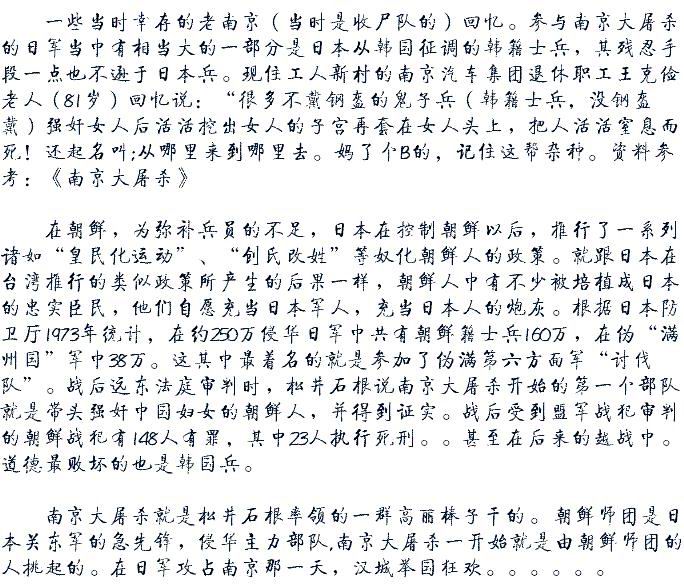 一些当时幸存的老南京（当时是收尸队的）回忆。参与南京大屠杀
的日军当中有相当大的一部分是日本从韩国征调的韩籍士兵，其残忍手
段一点也不逊于日本兵。现住工人新村的南京汽车集团退休职工王克俭
老人（81岁）回忆说：“很多不戴钢盔的鬼子兵（韩籍士兵，没钢盔
戴）强奸女人后活活挖出女人的子宫再套在女人头上，把人活活窒息而
死！还起名叫;从哪里来到哪里去。妈了个B的，记住这帮杂种。资料参
考：《南京大屠杀》
在朝鲜，为弥补兵员的不足，日本在控制朝鲜以后，推行了一系列
诸如“皇民化运动”、“创氏改姓”等奴化朝鲜人的政策。就跟日本在
台湾推行的类似政策所产生的后果一样，朝鲜人中有不少被培植成日本
的忠实臣民，他们自愿充当日本军人，充当日本人的炮灰。根据日本防
卫厅1973年统计，在约250万侵华日军中共有朝鲜籍士兵160万，在伪“满
州国”军中38万。这其中最著名的就是参加了伪满第六方面军“讨伐
队”。战后远东法庭审判时，松井石根说南京大屠杀开始的第一个部队
就是带头强奸中国妇女的朝鲜人，并得到证实。战后受到盟军战犯审判
的朝鲜战犯有148人有罪，其中23人执行死刑。。甚至在后来的越战中。
道德最败坏的也是韩国兵。
南京大屠杀就是松井石根率领的一群高丽棒子干的。朝鲜师团是日
本关东军的急先锋，侵华主力部队,南京大屠杀一开始就是由朝鲜师团的
人挑起的。在日军攻占南京那一天，汉城举国狂欢。。。。。。